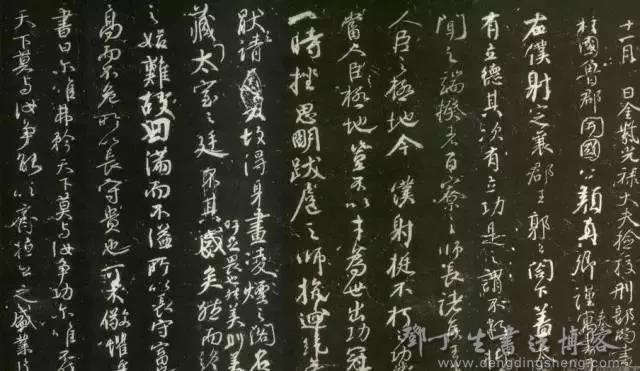 十一月 日金紫光祿大夫檢校刑部尚書
柱國魯郡開國公顏真卿謹寓書
右僕射定襄郡王郭公閤下蓋太
有立德其次有立功是之謂不朽抑
聞之端揆者百寮之師長諸侯王
人臣之極地今僕射挺不朽之功業
當人臣極地豈不以才為世出功冠
一時挫思明跋扈之師抗迴紇無
猒之請故得身畫凌煙之閣名
藏太室之廷吁其盛矣然而終
吁足畏也然美則美
之始難故曰滿而不溢所以長守富
高而不危所以長守貴也可不儆懼乎
書曰爾唯弗矜天下莫與汝爭功爾唯不伐
天下莫與汝爭能以齊桓公之盛業片
鄧丁生書法博客
www.dengdingsheng.com